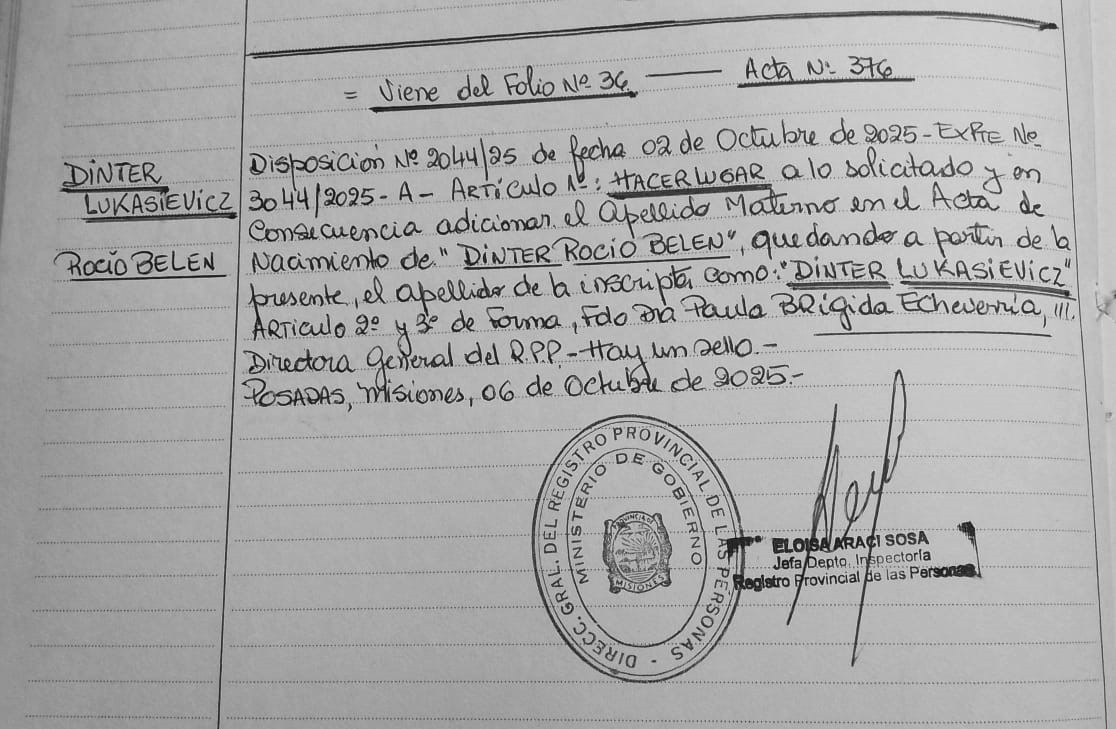 = Viene del Folio Nº 36 — Acta Nº 376
DINTER
LUKASIEVICZ
ROCIO BELEN
Disposición Nº 2044/25 de fecha 02 de Octubre de 2025 - EXPTE Nº
3044/2025 - A - ARTÍCULO 1º: HACER LUGAR a lo solicitado y en
Consecuencia adicionar el apellido Materno en el Acta de
Nacimiento de "DINTER ROCIO BELEN", quedando a partir de la
presente, el apellido de la inscripta como: "DINTER LUKASIEVICZ"
ARTICULO 2º y 3º de Forma, Fdo Dra Paula BRIgida Echeverria, ///.
Directora General del R.P.P - Hay un sello.-
POSADAS, Misiones, 06 de Octubre de 2025.-
DIRECC. GRAL. DEL REGISTRO PROVINCIAL DE LAS PERSONAS -
MINISTERIO DE GOBIERNO
PROVINCIA DE
MISIONES
ELOISA ARACI SOSA
Jefa Depto. Inspectoría
Registro Provincial de las Personas